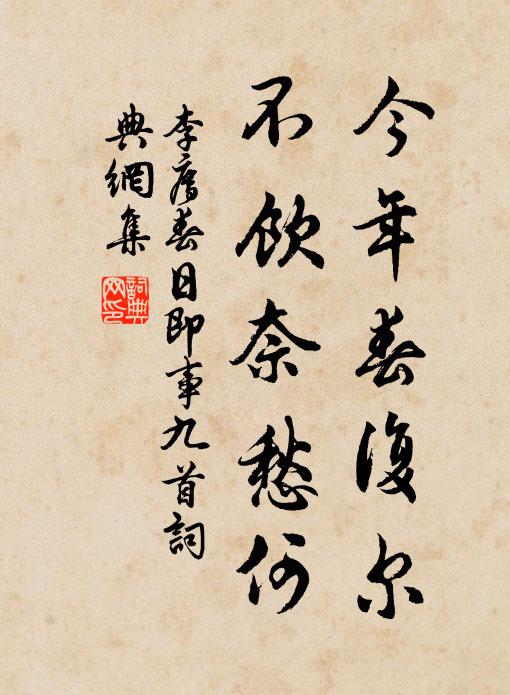 今年春復尔
不飲奈愁何
李廌春日即事九首詞
典網集
詞典
网印